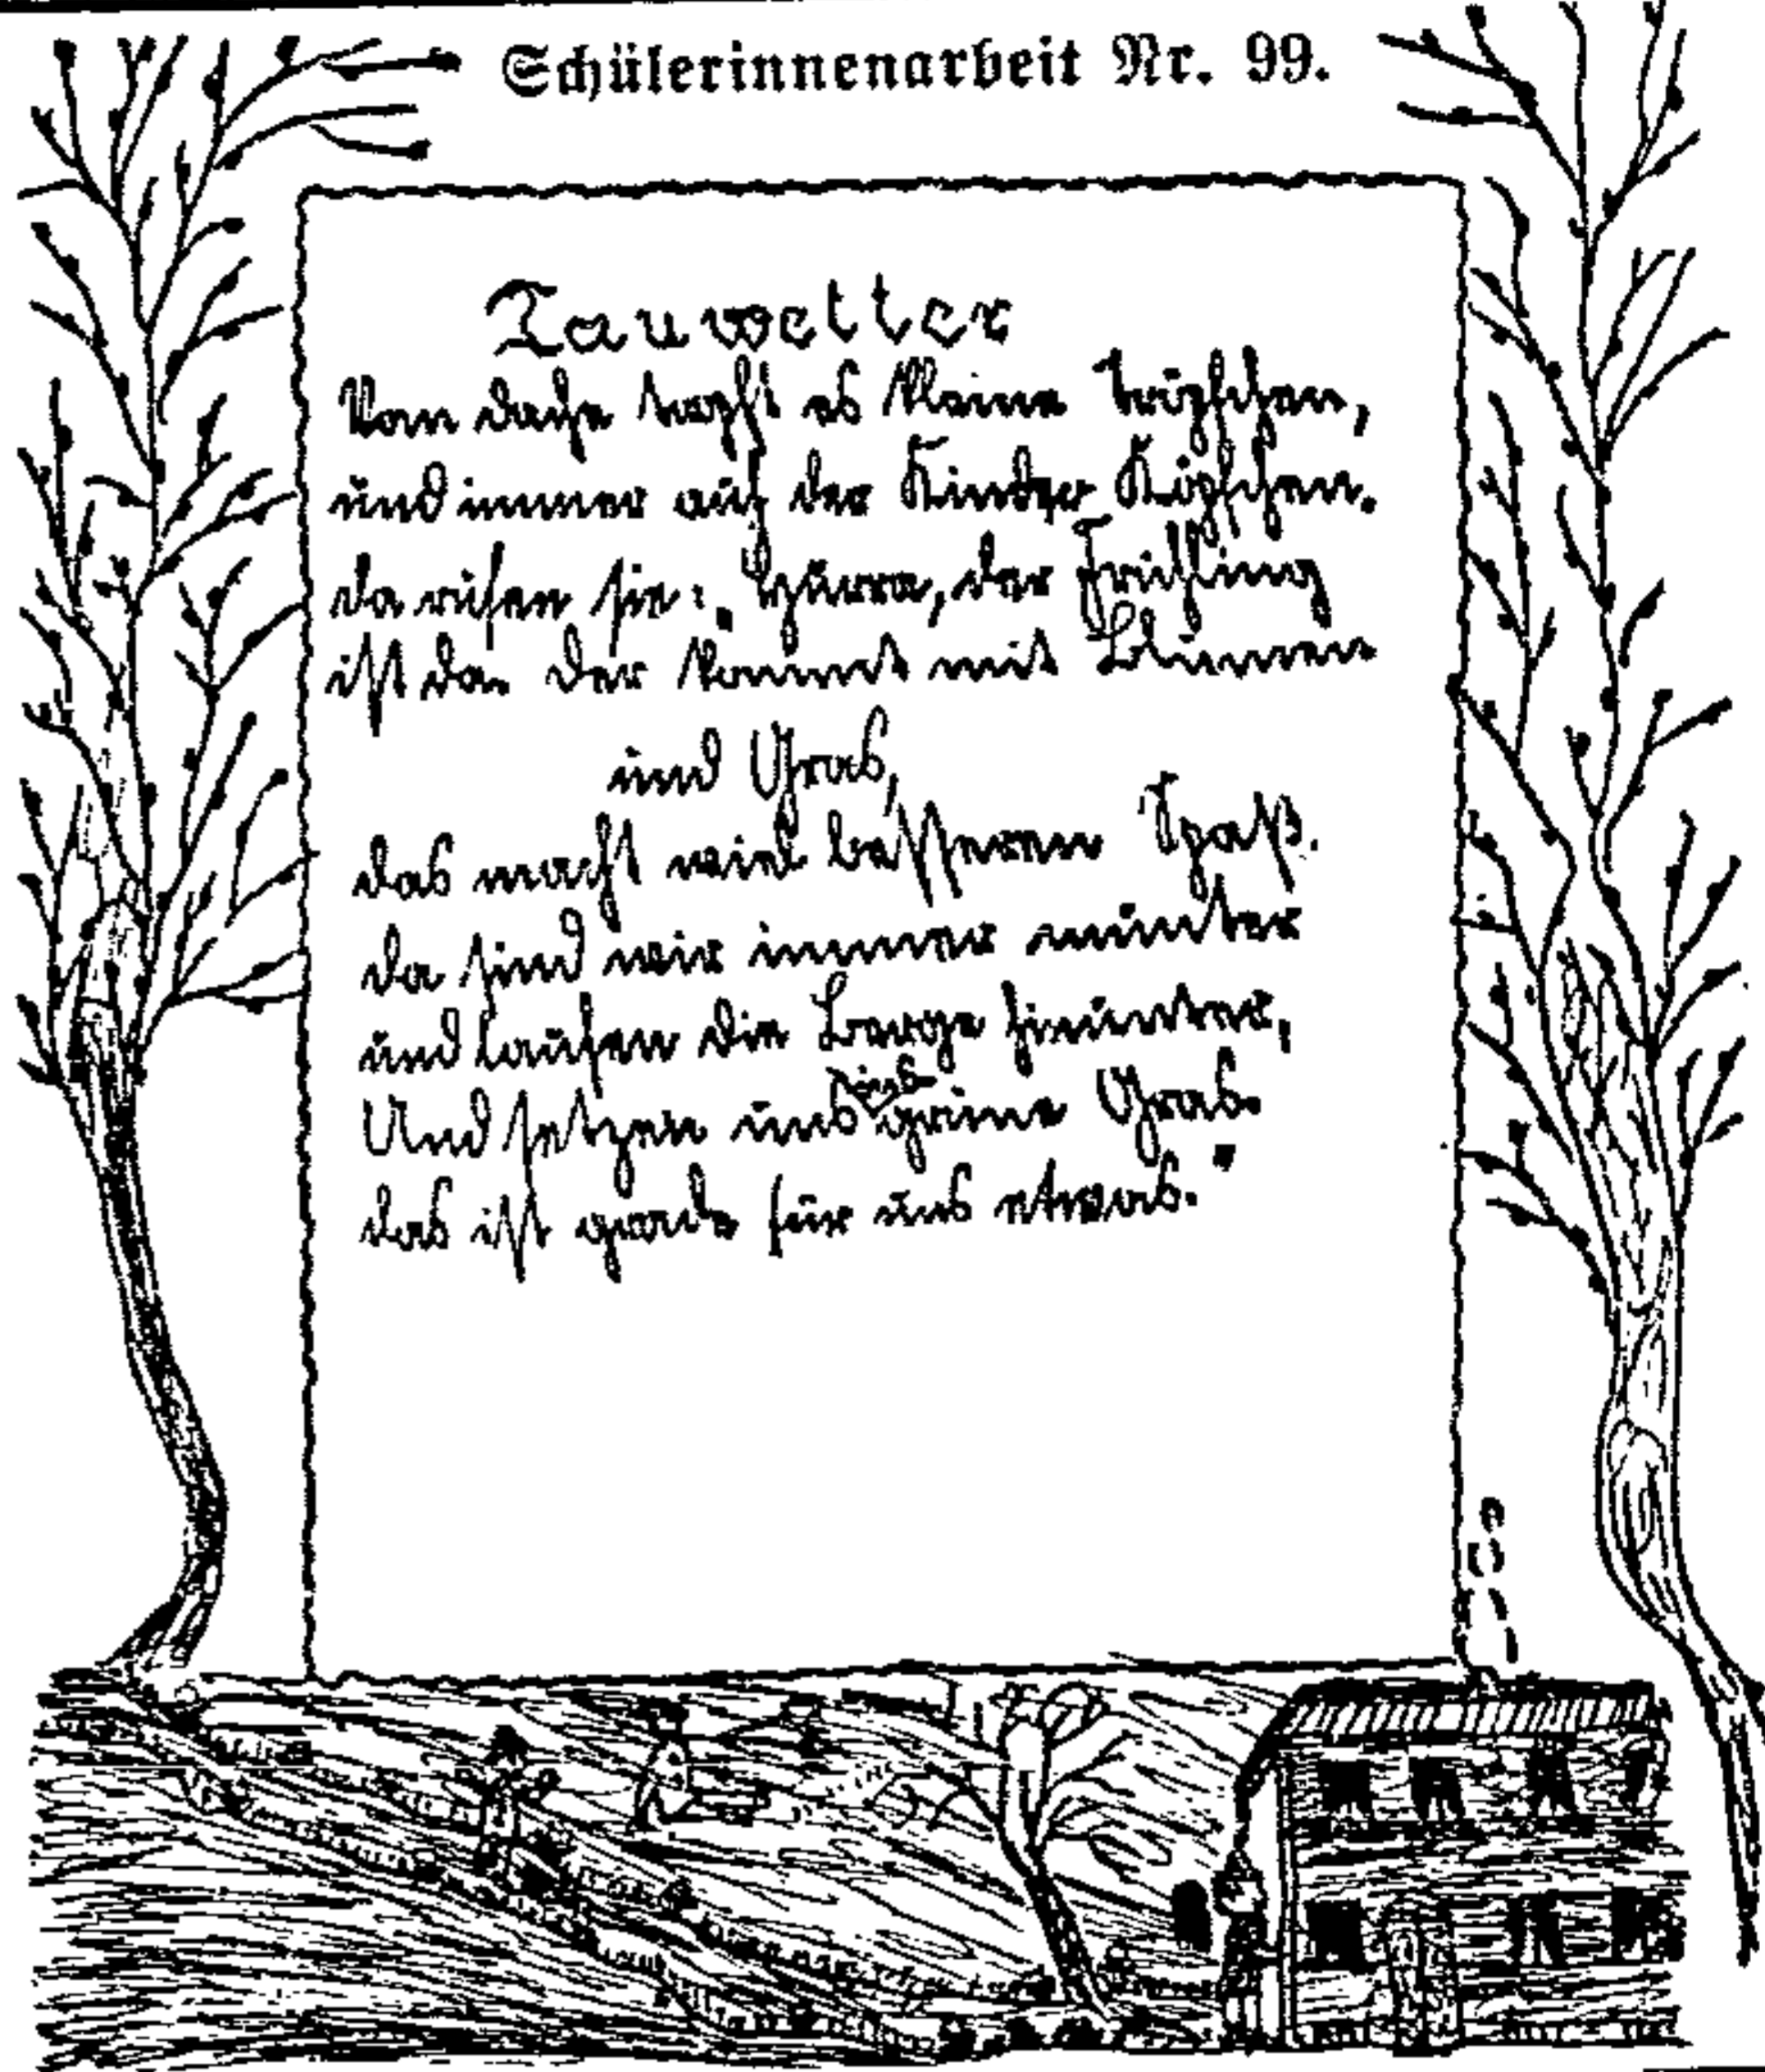 Schülerinnenarbeit Nr. 99.
Tauwetter
Vom dache tropft es kleine Tröpfchen,
und immer auf der Kinder Köpfchen.
da rufen sie: „Hurra, der Frühling
ist da. der kommt mit Blumen
und Gras,
das macht viel besseren Spaß.
da sind wir immer munter
und laufen die Berge hinunter,
Und setzen uns ins grüne Gras.
das ist grade für uns etwas."